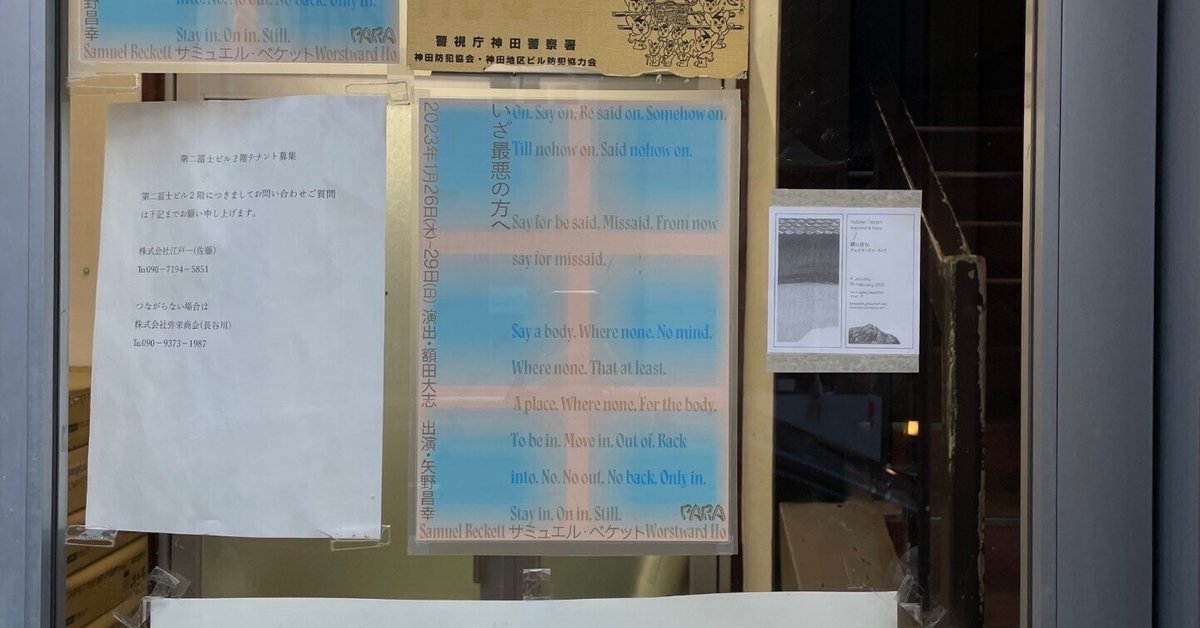 野昌幸
into. No. No out. No back. Only in.
Stay in. On in. Still.
PARA
Samuel Beckett サミュエル・ベケット Worstward Ho
警視庁神田警察署
神田防犯協会・神田地区ビル防犯協力会
第二冨士ビル2階テナント募集
第二冨士ビル2階につきましてお問い合わせご質問
は下記までお願い申し上げます。
株式会社江戸一(佐藤)
℡090-7194-5851
つながらない場合は
株式会社弥栄商会(長谷川)
℡090-9373-1987
2023年1月26日(木)–29日(日) 演出・額田大志 出演・矢野昌幸
いざ最悪の方へ
On. Say on. Be said on. Somehow on.
Till nohow on. Said nohow on.
Say for be said. Missaid. From now
say for missaid.
Say a body. Where none. No mind.
Where none. That at least.
A place. Where none. For the body.
To be in. Move in. Out of. Back
into. No. No out. No back. Only in.
Stay in. On in. Still.
PARA
Samuel Beckett サミュエル・ベケット Worstward Ho